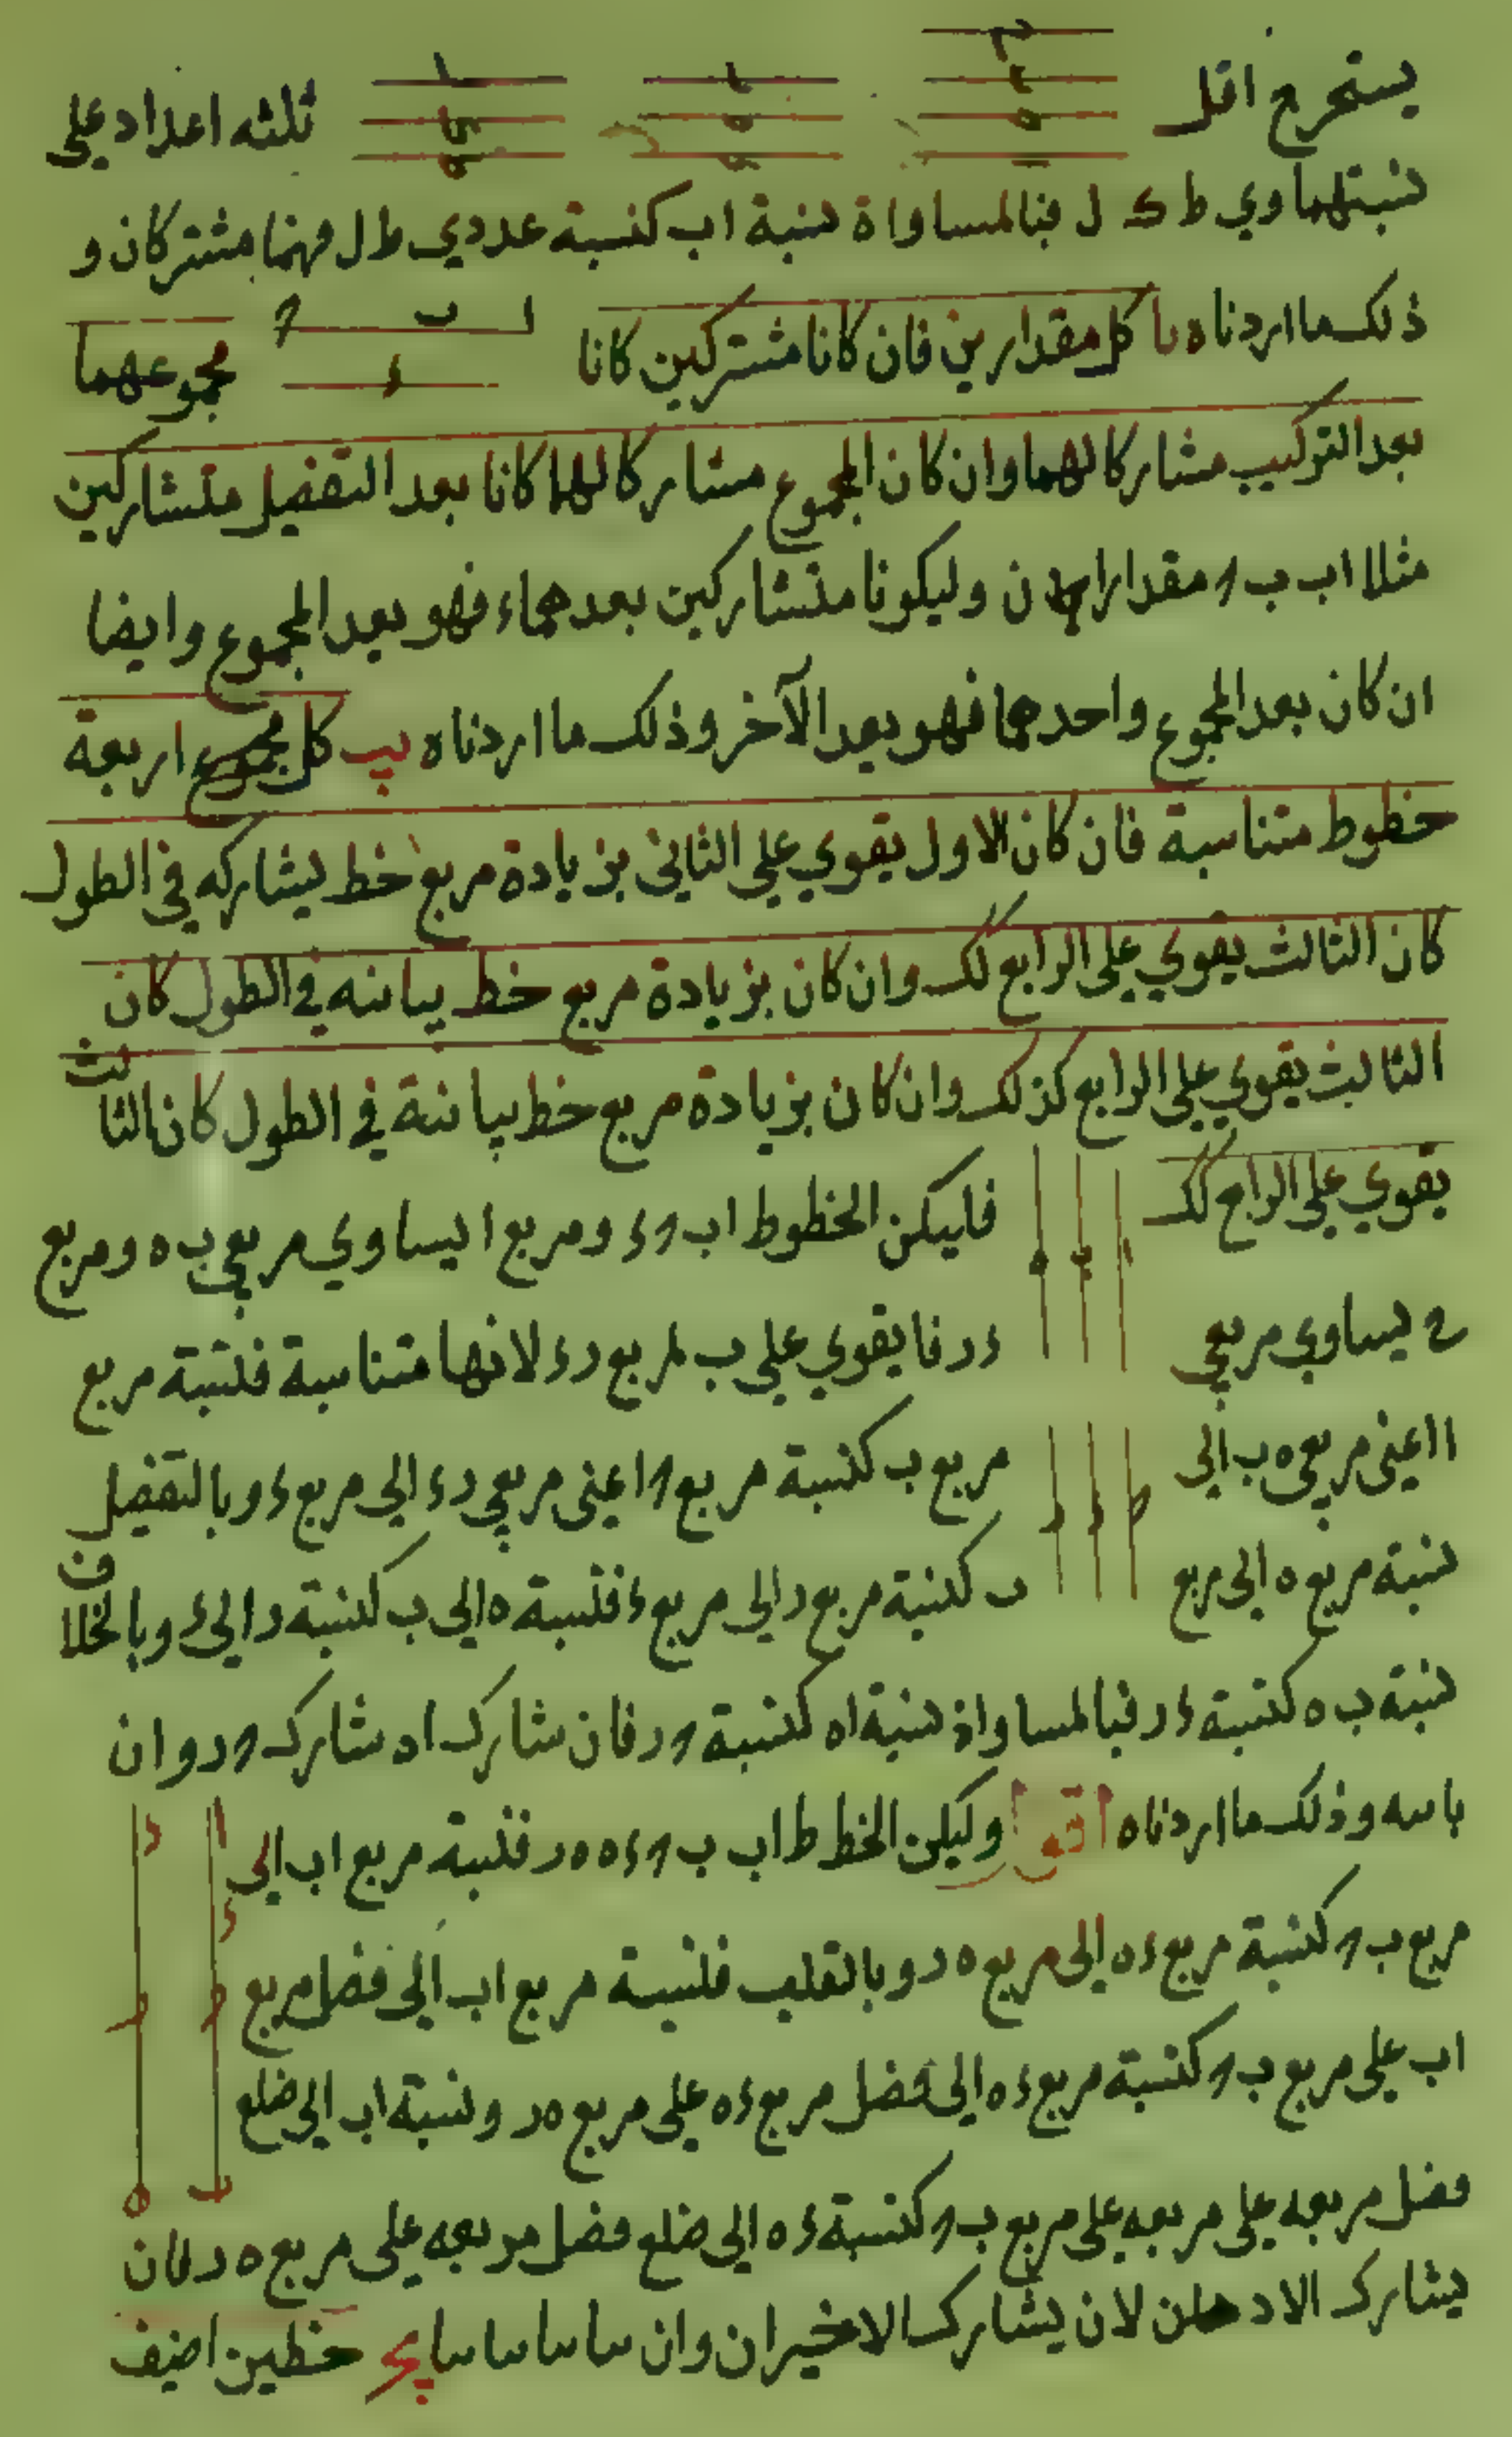 يستخرج اقل ثلثه اعداد على
نسبتهما وي ط ك ل فبالمساواة نسبة اب كنسبة عددي ط ل فهما مشتركان و
ذلك ما اردناه يا كل مقدارين فان كانا مشتركين كانا مجموعهما
بعد التركيب مشاركا لهما وان كان المجموع مشاركا لهما كانا بعد التفضيل متشاركين
مثلا اب ب ح مقداران وليكونا متشاركين بعدهما ء فهو يعد المجموع وايضا
ان كان يعد المجموع واحدهما فهو يعد الآخر وذلك ما اردناه يب كل اربعة
خطوط متناسبة فان كان الاول يقوي على الثاني بزيادة مربع خط يشاركه في الطول
كان الثالث يقوي على الرابع كك وان كان بزيادة مربع خط يباينه في الطول كان
الثالث يقوي على الرابع كذلك وان كان بزيادة مربع خط يباينة في الطول كان الثالث
يقوي على الرابع كك فليكن الخطوط اب ح ء ومربع ا يساوي مربعي ب ه ومربع
ح يساوي مربعي ء ر فا يقوي على ب لمربع ر ء لانها متناسبة فنسبة مربع
ا اعني مربعي ه ب الي مربع ب كنسبة مربع ح اعني مربعي ر ء الي مربع ء وبالتفضيل
نسبة مربع ه الى مربع ب كنسبة مربع ر الى مربع ء فنسبة ه الى ب كنسبة ر الى ء وبالخلاف
نسبة ب ه كنسبة ء ر فبالمساواة نسبة ا ه كنسبة ح ر فان شارك ا ه شارك ح ر وان
باينه وذلك ما اردناه اقو ا وليكن الخطط اب ب ح ء ه ه ر فنسبة مربع اب الى
مربع ب ح كنسبة مربع ء ه الى مربع ه ر وبالقلب فنسبة مربع اب الى فضل مربع
اب على مربع ب ح كنسبة مربع ء ه الى فضل مربع ء ه على مربع ه ر ونسبة اب الى ضلع
فضل مربعه على مربعه على مربع ب ح كنسبة ء ه الى ضلع فضل مربعه على مربع ه ر فان
يشارك لان يشارك الاخيران وان يج خطين اضيف